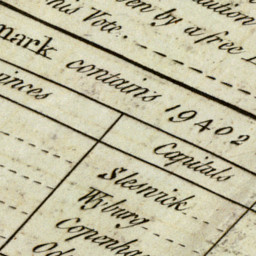 en by a free
his Vote.
mark contains 19402
inces
Capitals
Sleswick
Wyburg
Copenha
Od